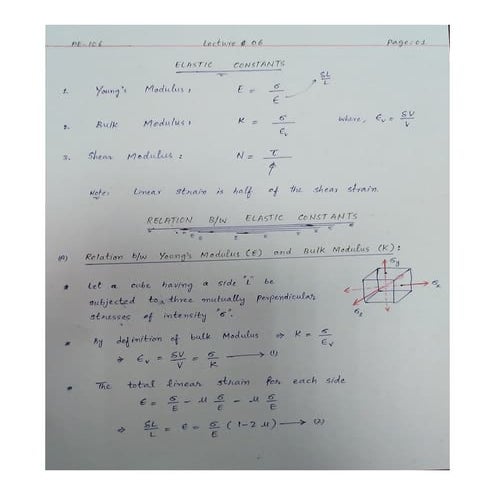 ME-106 Lecture # 06 Page: 01
ELASTIC CONSTANTS
1. Young's Modulus: E = σ/ε → δL/L
2. Bulk Modulus: K = σ/εv where, εv = δV/V
3. Shear Modulus: N = τ/φ
Note: Linear strain is half of the shear strain.
RELATION B/W ELASTIC CONSTANTS
(A) Relation b/w Young's Modulus (E) and Bulk Modulus (K):
* Let a cube having a side "L" be
subjected to three mutually perpendicular
stresses of intensity "σ".
σy
σx
σz
* By definition of bulk Modulus ⇒ K = σ/εv
⇒ εv = δV/V = σ/K → (1)
* The total linear strain for each side
ε = σ/E - μ σ/E - μ σ/E
⇒ δL/L = ε = σ/E (1-2μ) → (2)